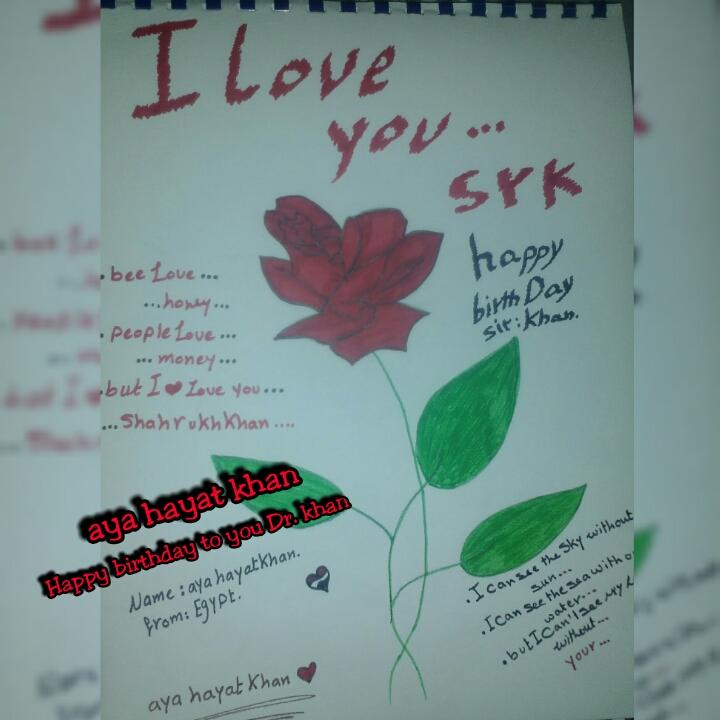 I Love
you...
srk
happy
birthDay
sir:khan.
.bee Love...
...honey...
.people Love...
...money...
.but I ❤ Love you...
...Shahrukhkhan....
aya hayat khan
Happy birthday to you Dr. khan
Name : ayahayatkhan.
from: Egypt.
aya hayat Khan ❤
.I can see the Sky without
sun...
.I Can see the sea with
water...
.but I Can't see my
without...
your...